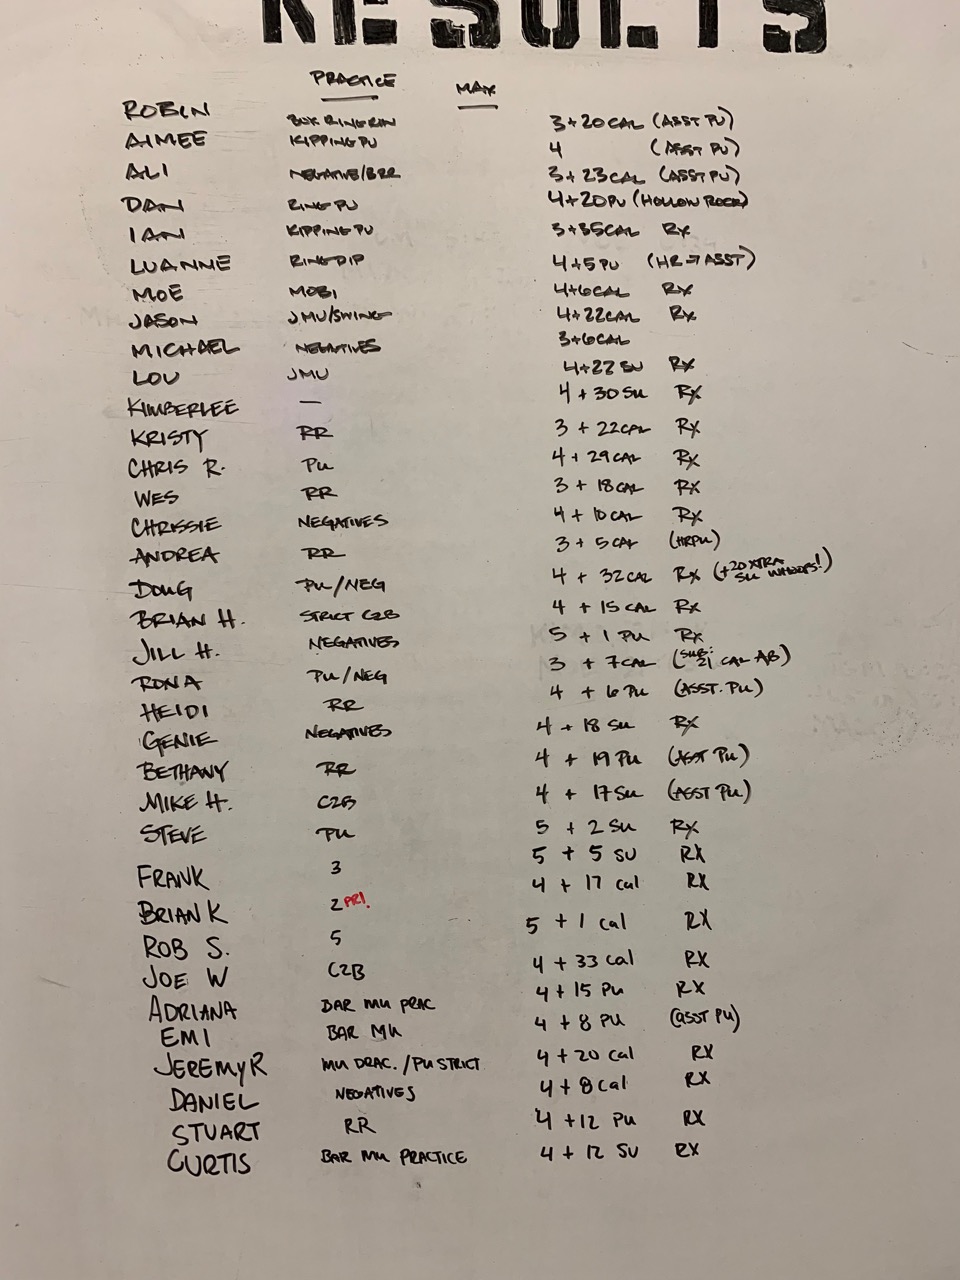 RESULTS
PRACTICE MAX
ROBIN BOX RING RIN 3+20CAL (ASST PU)
AIMEE KIPPING PU 4 (ASST PU)
ALI NEGATIVE/BRR 3+23CAL (ASST PU)
DAN RING PU 4+20PU (HOLLOW ROCK)
IAN KIPPING PU 3+35CAL RX
LUANNE RING DIP 4+5PU (HR→ASST)
MOE MOBI 4+6CAL RX
JASON JMU/SWING 4+22CAL RX
MICHAEL NEGATIVES 3+6CAL
LOU JMU 4+22 SU RX
KIMBERLEE — 4 + 30 SU RX
KRISTY RR 3 + 22CAL RX
CHRIS R. PU 4 + 29 CAL RX
WES RR 3 + 18 CAL RX
CHRISSIE NEGATIVES 4 + 10 CAL RX
ANDREA RR 3 + 5 CAL (HRPU)
DOUG PU/NEG 4 + 32 CAL RX (+20 XTRA SU WHOOPS!)
BRIAN H. STRICT C2B 4 + 15 CAL RX
JILL H. NEGATIVES 5 + 1 PU RX
RONA PU/NEG 3 + 7CAL (SUB: 21 CAL AB)
HEIDI RR 4 + 6 PU (ASST. PU)
GENIE NEGATIVES 4 + 18 SU RX
BETHANY RR 4 + 19 PU (ASST PU)
MIKE H. C2B 4 + 17 SU (ASST PU)
STEVE PU 5 + 2 SU RX
FRANK 3 5 + 5 SU RX
BRIAN K 2 PR! 4 + 17 Cal RX
ROB S. 5 5 + 1 Cal RX
JOE W C2B 4 + 33 Cal RX
ADRIANA BAR MU PRAC 4 + 15 PU RX
EMI BAR MU 4 + 8 PU (ASST PU)
JEREMY R MU PRAC. / PU STRICT 4 + 20 Cal RX
DANIEL NEGATIVES 4 + 8 Cal RX
STUART RR 4 + 12 PU RX
CURTIS BAR MU PRACTICE 4 + 12 SU RX